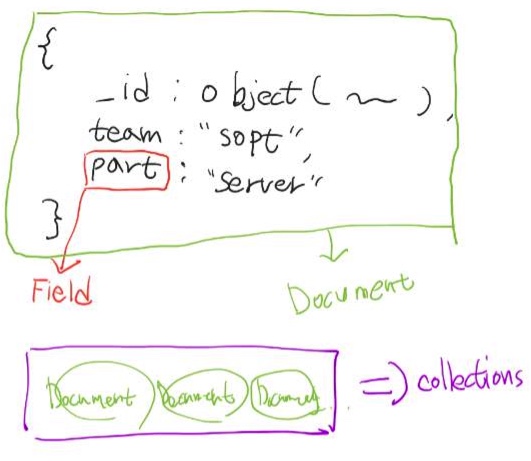 {
_id : object( ~ ),
team : "sopt",
part : "server"
}
Field
Document
Document Document Document => collections